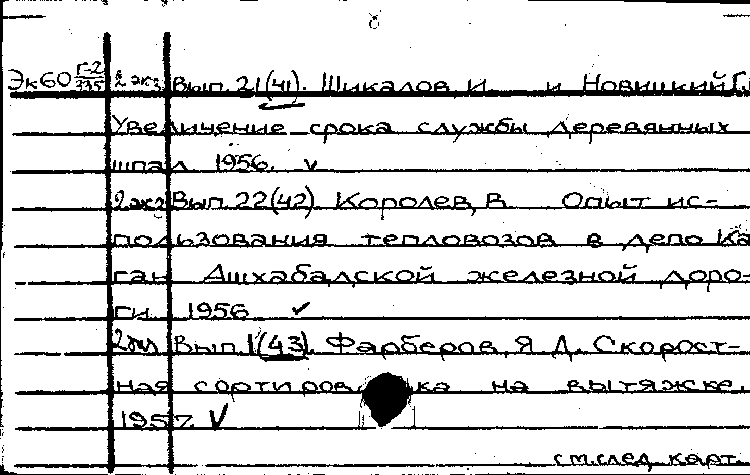 8
Эк60 Г-2/335 2 экз. Вып. 21(41). Шикалов, И. и Новицкий Г.
Увеличение срока службы деревянных
шпал 1956. ✓
2 экз Вып. 22(42). Королев, В. Опыт ис-
пользования тепловозов в депо Ка
ган Ашхабадской железной доро-
ги. 1956 ✓
2 экз Вып. 1(43). Фарберов, Я. Д. Скорост-
ная сортировка на вытяжке.
1957. ✓
см. след. карт.